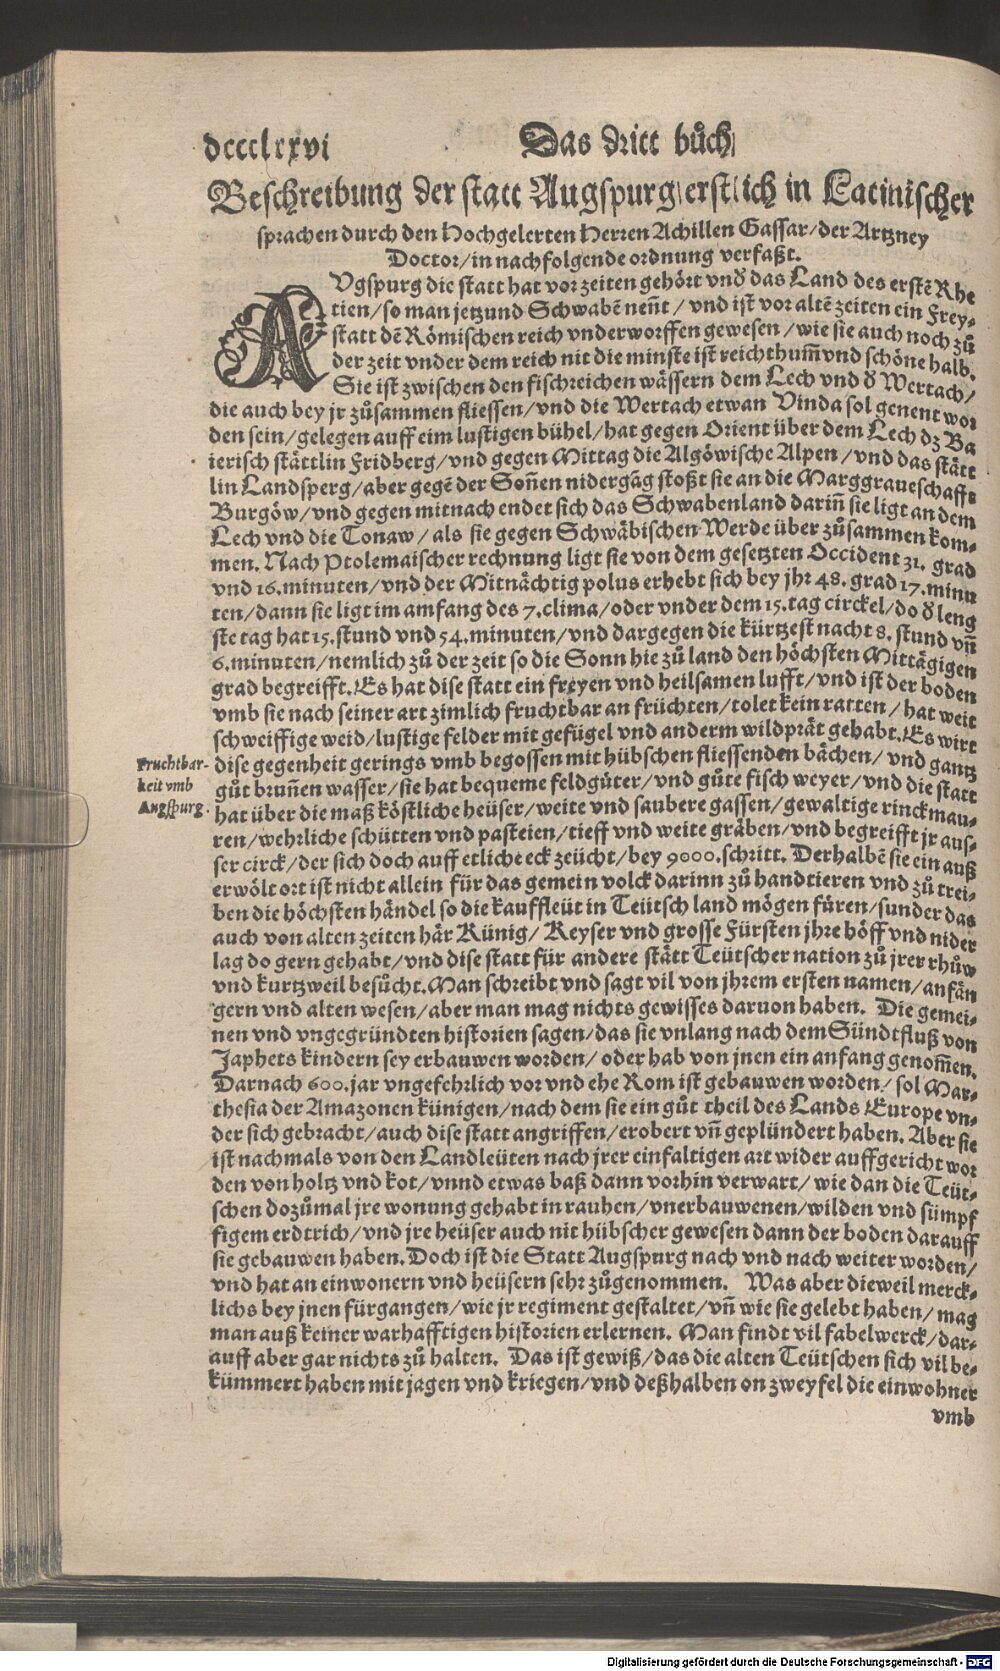 dcccclxxvi
Das dritt bůch
Beschreibung der statt Augspurg/ erstlich in Latinischer
sprachen durch den Hochgelerten Herren Achillen Gassar/ der Artzney
Doctor/ in nachfolgende ordnung verfaßt.
AVgspurg die statt hat vor zeiten gehört vnd das Land des erstē Rhe
tien/ so man jetzund Schwabē neñt/ vnd ist vor altē zeiten ein Frey-
statt dē Römischen reich vnderworffen gewesen/ wie sie auch noch zů
der zeit vnder dem reich nit die minste ist reichthum̄ vnd schöne halb.
Sie ist zwischen den fischreichen wässern dem Lech vnd d Wertach/
die auch bey jr zůsammen fliessen/ vnd die Wertach etwan Vinda sol genent wor
den sein/ gelegen auff eim lustigen bühel/ hat gegen Orient über dem Lech dz Ba
ierisch stättlin Fridberg/ vnd gegen Mittag die Algöwische Alpen/ vnd das stätt
lin Landsperg/ aber gegē der Soñen nidergāg stoßt sie an die Marggraueschafft
Burgöw/ vnd gegen mitnach endet sich das Schwabenland dariñ sie ligt an dem
Lech vnd die Tonaw/ als sie gegen Schwäbischen Werde über zůsammen kom-
men. Nach Ptolemaischer rechnung ligt sie von dem gesetzten Occident 31. grad
vnd 16. minuten/ vnd der Mitnächtig polus erhebt sich bey jhr 48. grad 17. minu
ten/ dann sie ligt im amfang des 7. clima/ oder vnder dem 15. tag circkel/ do d leng
ste tag hat 15. stund vnd 54. minuten/ vnd dargegen die kürtzest nacht 8. stund vñ
6. minuten/ nemlich zů der zeit so die Sonn hie zů land den höchsten Mittägigen
grad begreifft. Es hat dise statt ein freyen vnd heilsamen lufft/ vnd ist der boden
vmb sie nach seiner art zimlich fruchtbar an früchten/ tolet kein ratten/ hat weit
schweiffige weid/ lustige felder mit gefügel vnd anderm wildprät gehabt. Es wirt
Fruchtbar-
keit vmb
Augspurg.
dise gegenheit gerings vmb begossen mit hübschen fliessenden bächen/ vnd gantz
gůt bruñen wasser/ sie hat bequeme feldgüter/ vnd gůte fisch weyer/ vnd die statt
hat über die maß köstliche heüser/ weite vnd saubere gassen/ gewaltige rinckmau-
ren/ wehrliche schütten vnd pasteien/ tieff vnd weite gräben/ vnd begreifft jr aus-
ser circk/ der sich doch auff etliche eck zeücht/ bey 9000. schritt. Derhalbē sie ein auß
erwölt ort ist nicht allein für das gemein volck darinn zů handtieren vnd zů trei-
ben die höchsten händel so die kauffleüt in Teütsch land mögen füren/ sunder das
auch von alten zeiten här Künig/ Keyser vnd grosse Fürsten jhre höff vnd nider
lag do gern gehabt/ vnd dise statt für andere stätt Teütscher nation zů jrer rhůw
vnd kurtzweil besůcht. Man schreibt vnd sagt vil von jhrem ersten namen/ anfän
gern vnd alten wesen/ aber man mag nichts gewisses daruon haben. Die gemei-
nen vnd vngegründten historien sagen/ das sie vnlang nach dem Sündtfluß von
Japhets kindern sey erbauwen worden/ oder hab von jnen ein anfang genom̄en.
Darnach 600. jar vngefehrlich vor vnd ehe Rom ist gebauwen worden/ sol Mar-
thesia der Amazonen künigen/ nach dem sie ein gůt theil des Lands Europe vn-
der sich gebracht/ auch dise statt angriffen/ erobert vñ geplündert haben. Aber sie
ist nachmals von den Landleüten nach jrer einfaltigen art wider auffgericht wor
den von holtz vnd kot/ vnnd etwas baß dann vorhin verwart/ wie dan die Teüt-
schen dozůmal jre wonung gehabt in rauhen/ vnerbauwenen/ wilden vnd sümpf
figem erdtrich/ vnd jre heüser auch nit hübscher gewesen dann der boden darauff
sie gebauwen haben. Doch ist die Statt Augspurg nach vnd nach weiter worden/
vnd hat an einwonern vnd heüsern sehr zůgenommen. Was aber dieweil merck-
lichs bey jnen fürgangen/ wie jr regiment gestaltet/ vñ wie sie gelebt haben/ mag
man auß keiner warhafftigen historien erlernen. Man findt vil fabelwerck/ dar-
auff aber gar nichts zů halten. Das ist gewiß/ das die alten Teütschen sich vil be-
kümmert haben mit jagen vnd kriegen/ vnd deßhalben on zweyfel die einwohner
vmb
Digitalisierung gefördert durch die Deutsche Forschungsgemeinschaft - DFG